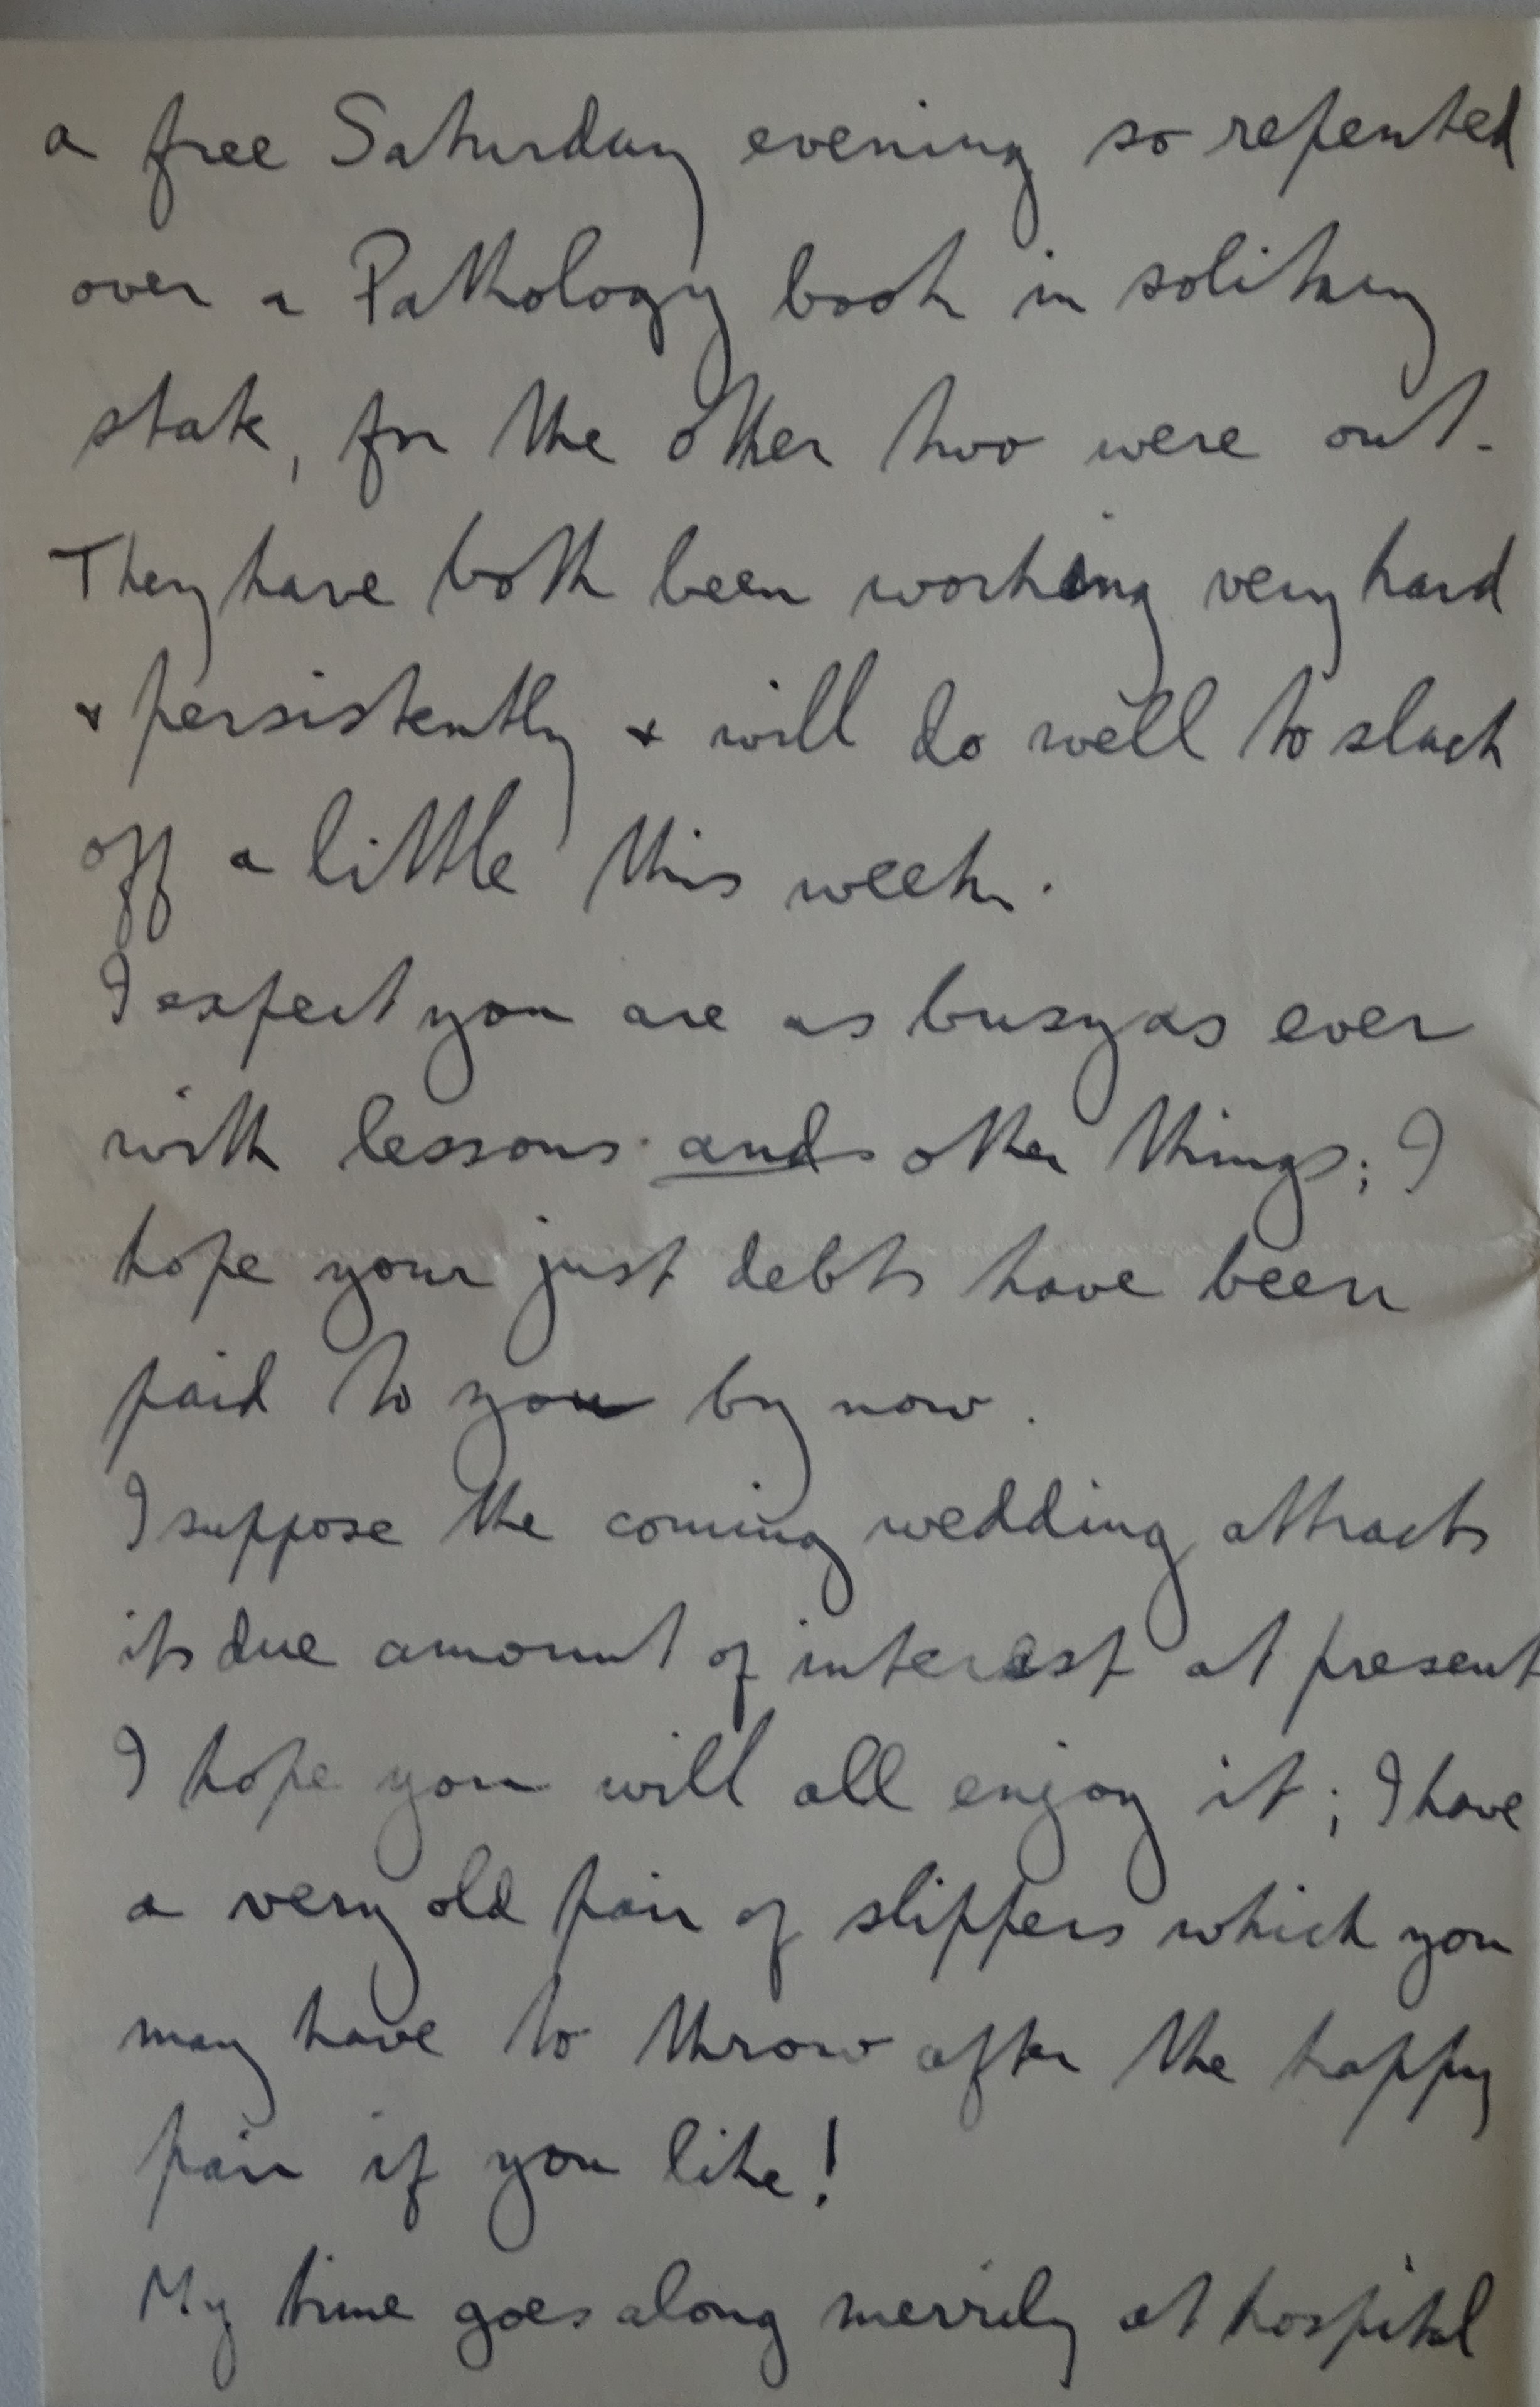 a free Saturday evening so repented
over a Pathology book in solitary
state, for the other two were out.
They have both been working very hard
& persistently & will do well to slack
off a little this week.
I expect you are as busy as ever
with lessons and other things; I
hope your just debts have been
paid to you by now.
I suppose the coming wedding attracts
its due amount of interest at present
I hope you will all enjoy it; I have
a very old pair of slippers which you
may have to throw after the happy
pair if you like!
My time goes along merrily at hospital